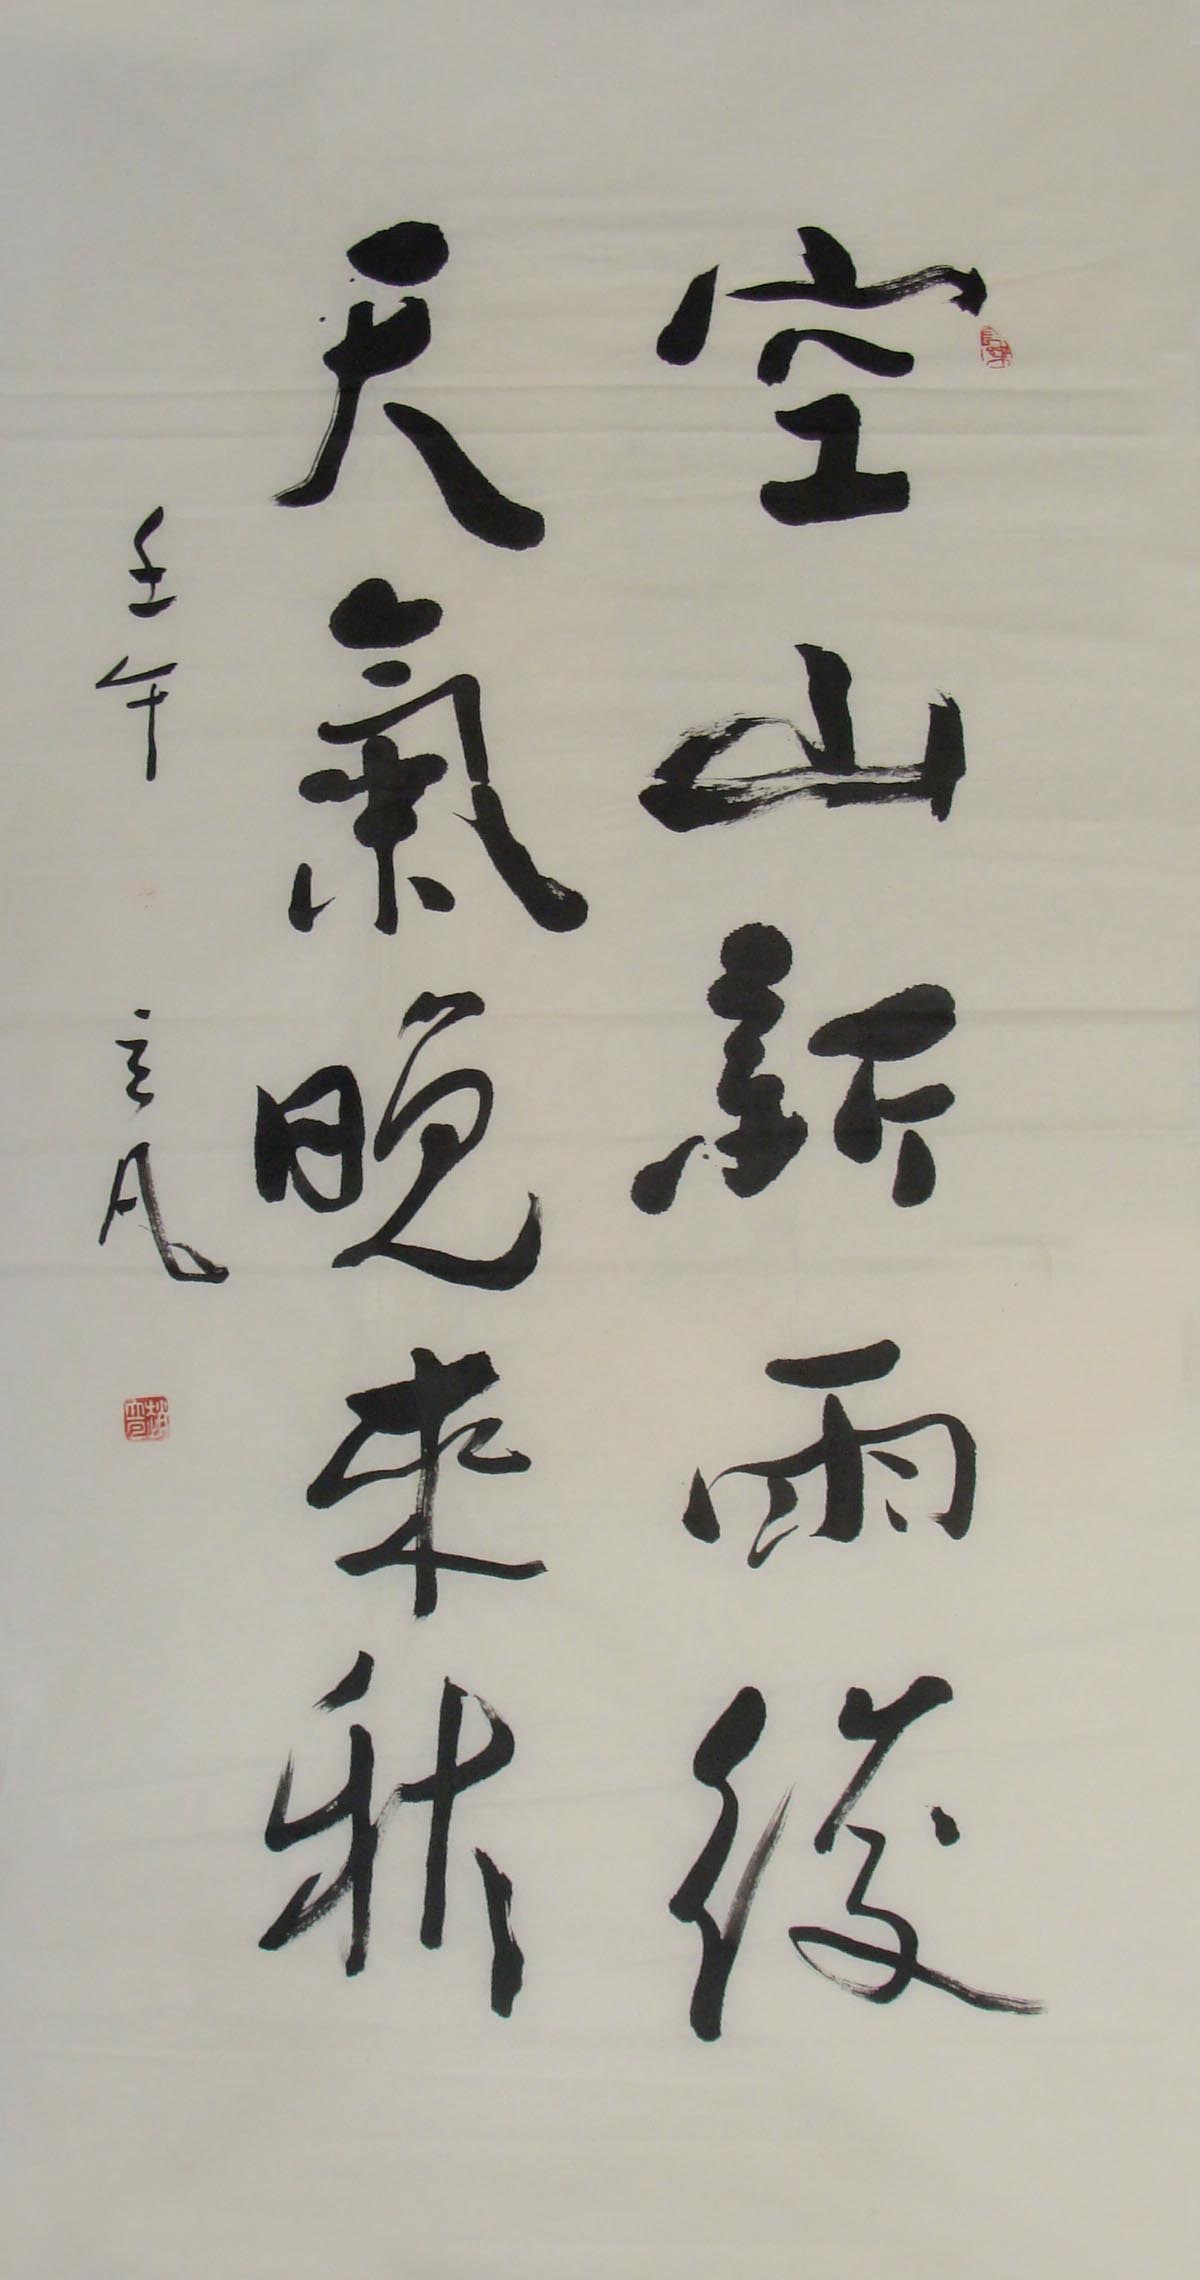 空山新雨後
天氣晚來秋
壬午 立凡